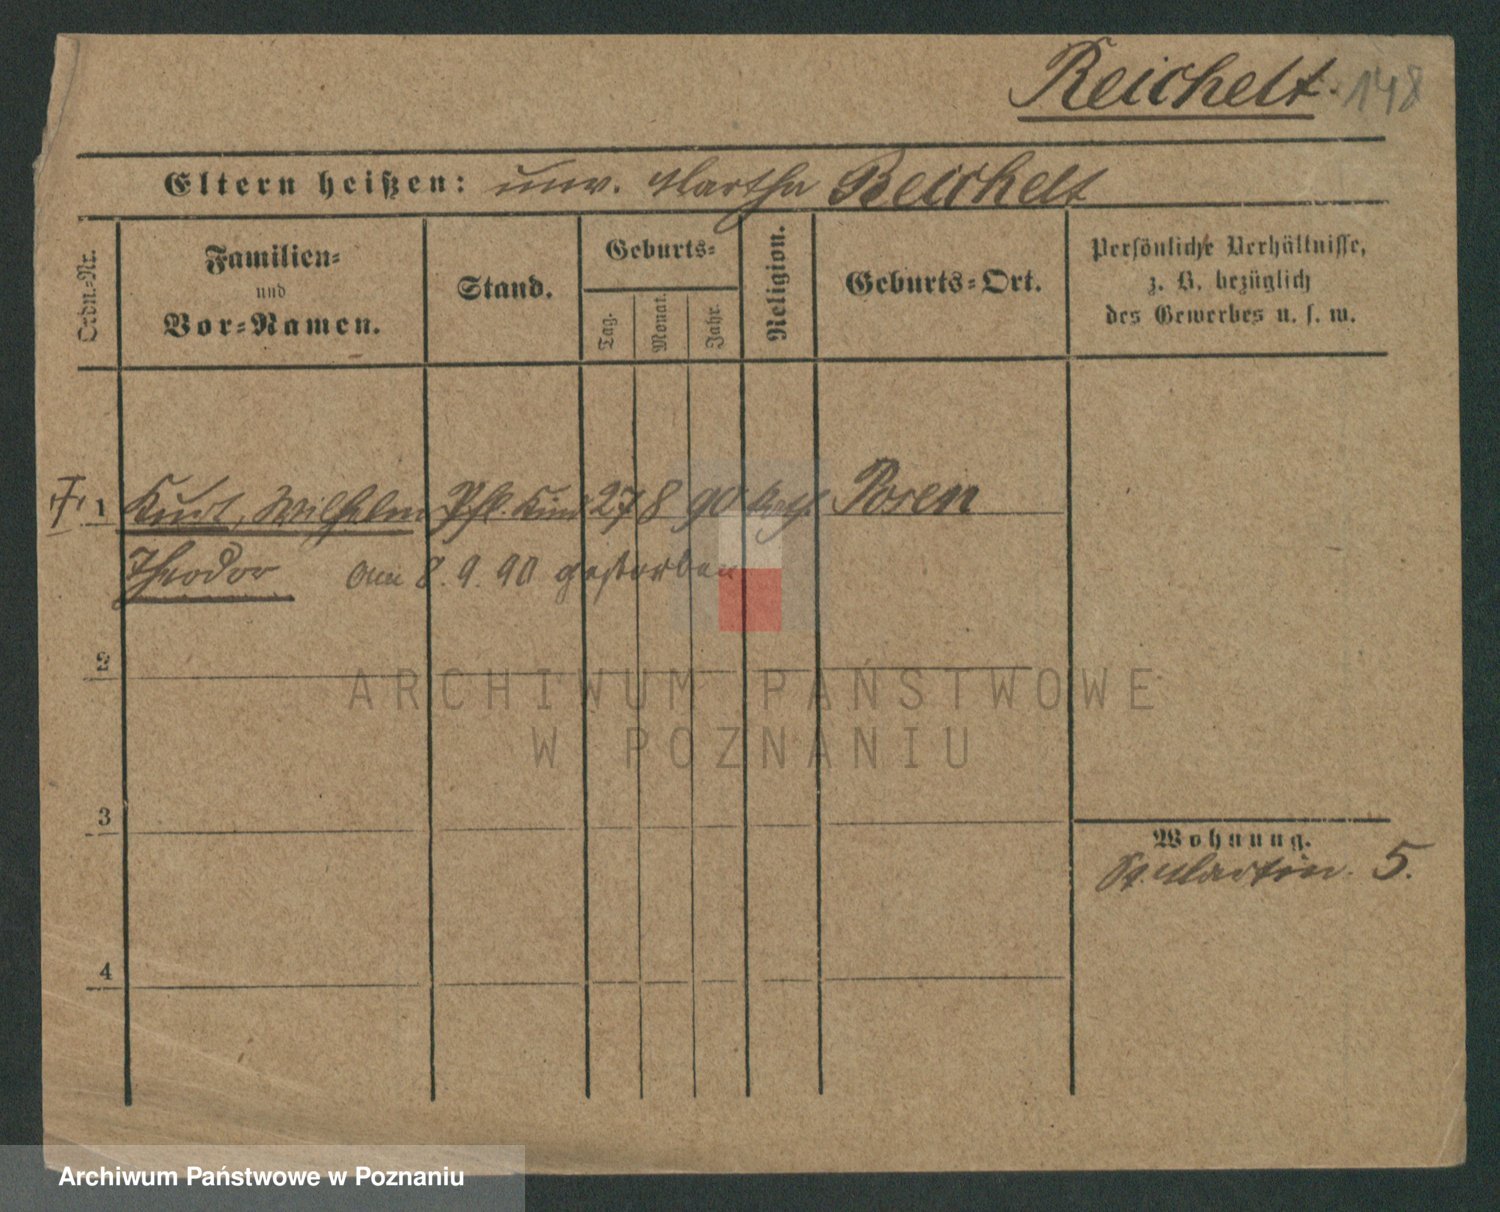 Reichelt. 148
Eltern heißen: unv. Martha Reichelt
Ordn.-Nr.
Familien-
und
Vor-Namen.
Stand.
Geburts-
Tag.
Monat.
Jahr.
Religion.
Geburts-Ort.
Persönliche Verhältnisse,
z. B. bezüglich
des Gewerbes u. s. w.
1 Kurt, Wilhelm Pfl. Kind 27 8 90 kath. Posen
Theodor am 8. 9. 90 gestorben
2
3
4
Wohnung.
St. Martin. 5.
ARCHIWUM PAŃSTWOWE
W POZNANIU
Archiwum Państwowe w Poznaniu